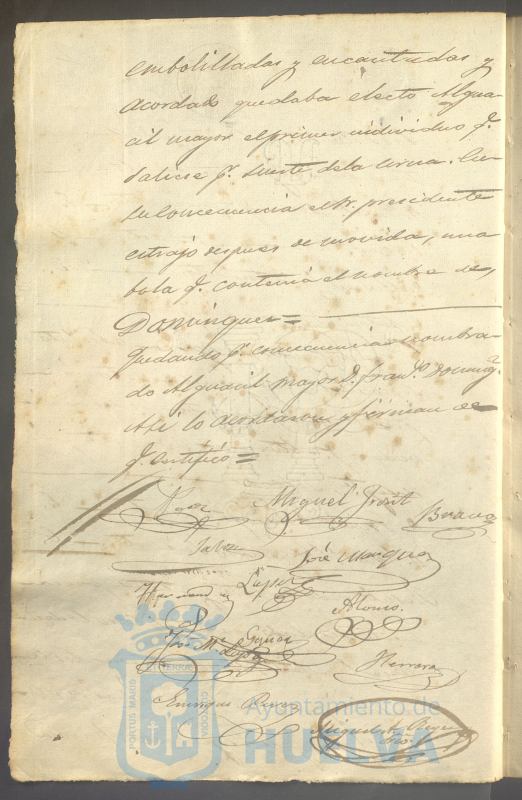 embolilladas y encantradas y
acordado quedaba electo Algua-
cil mayor el primer individuo q.
saliese p. suerte de la urna. En
su concecuencia el Sr. presidente
estrajo despues de movida, una
bola q. contenia el nombre de
Dominguez =
Quedando p. consecuencia nombra-
do Alguacil mayor D. Fran.co Doming.z
Asi lo acordaron y firman de
q. certifico =
Miguel Bravo
José Marquez
Lopez
Alonso.
José M.a Lopez
Herrera
Enrique
PORTUS MARIS
ET TERRÆ
CUSTODIA
Ayuntamiento de
HUELVA